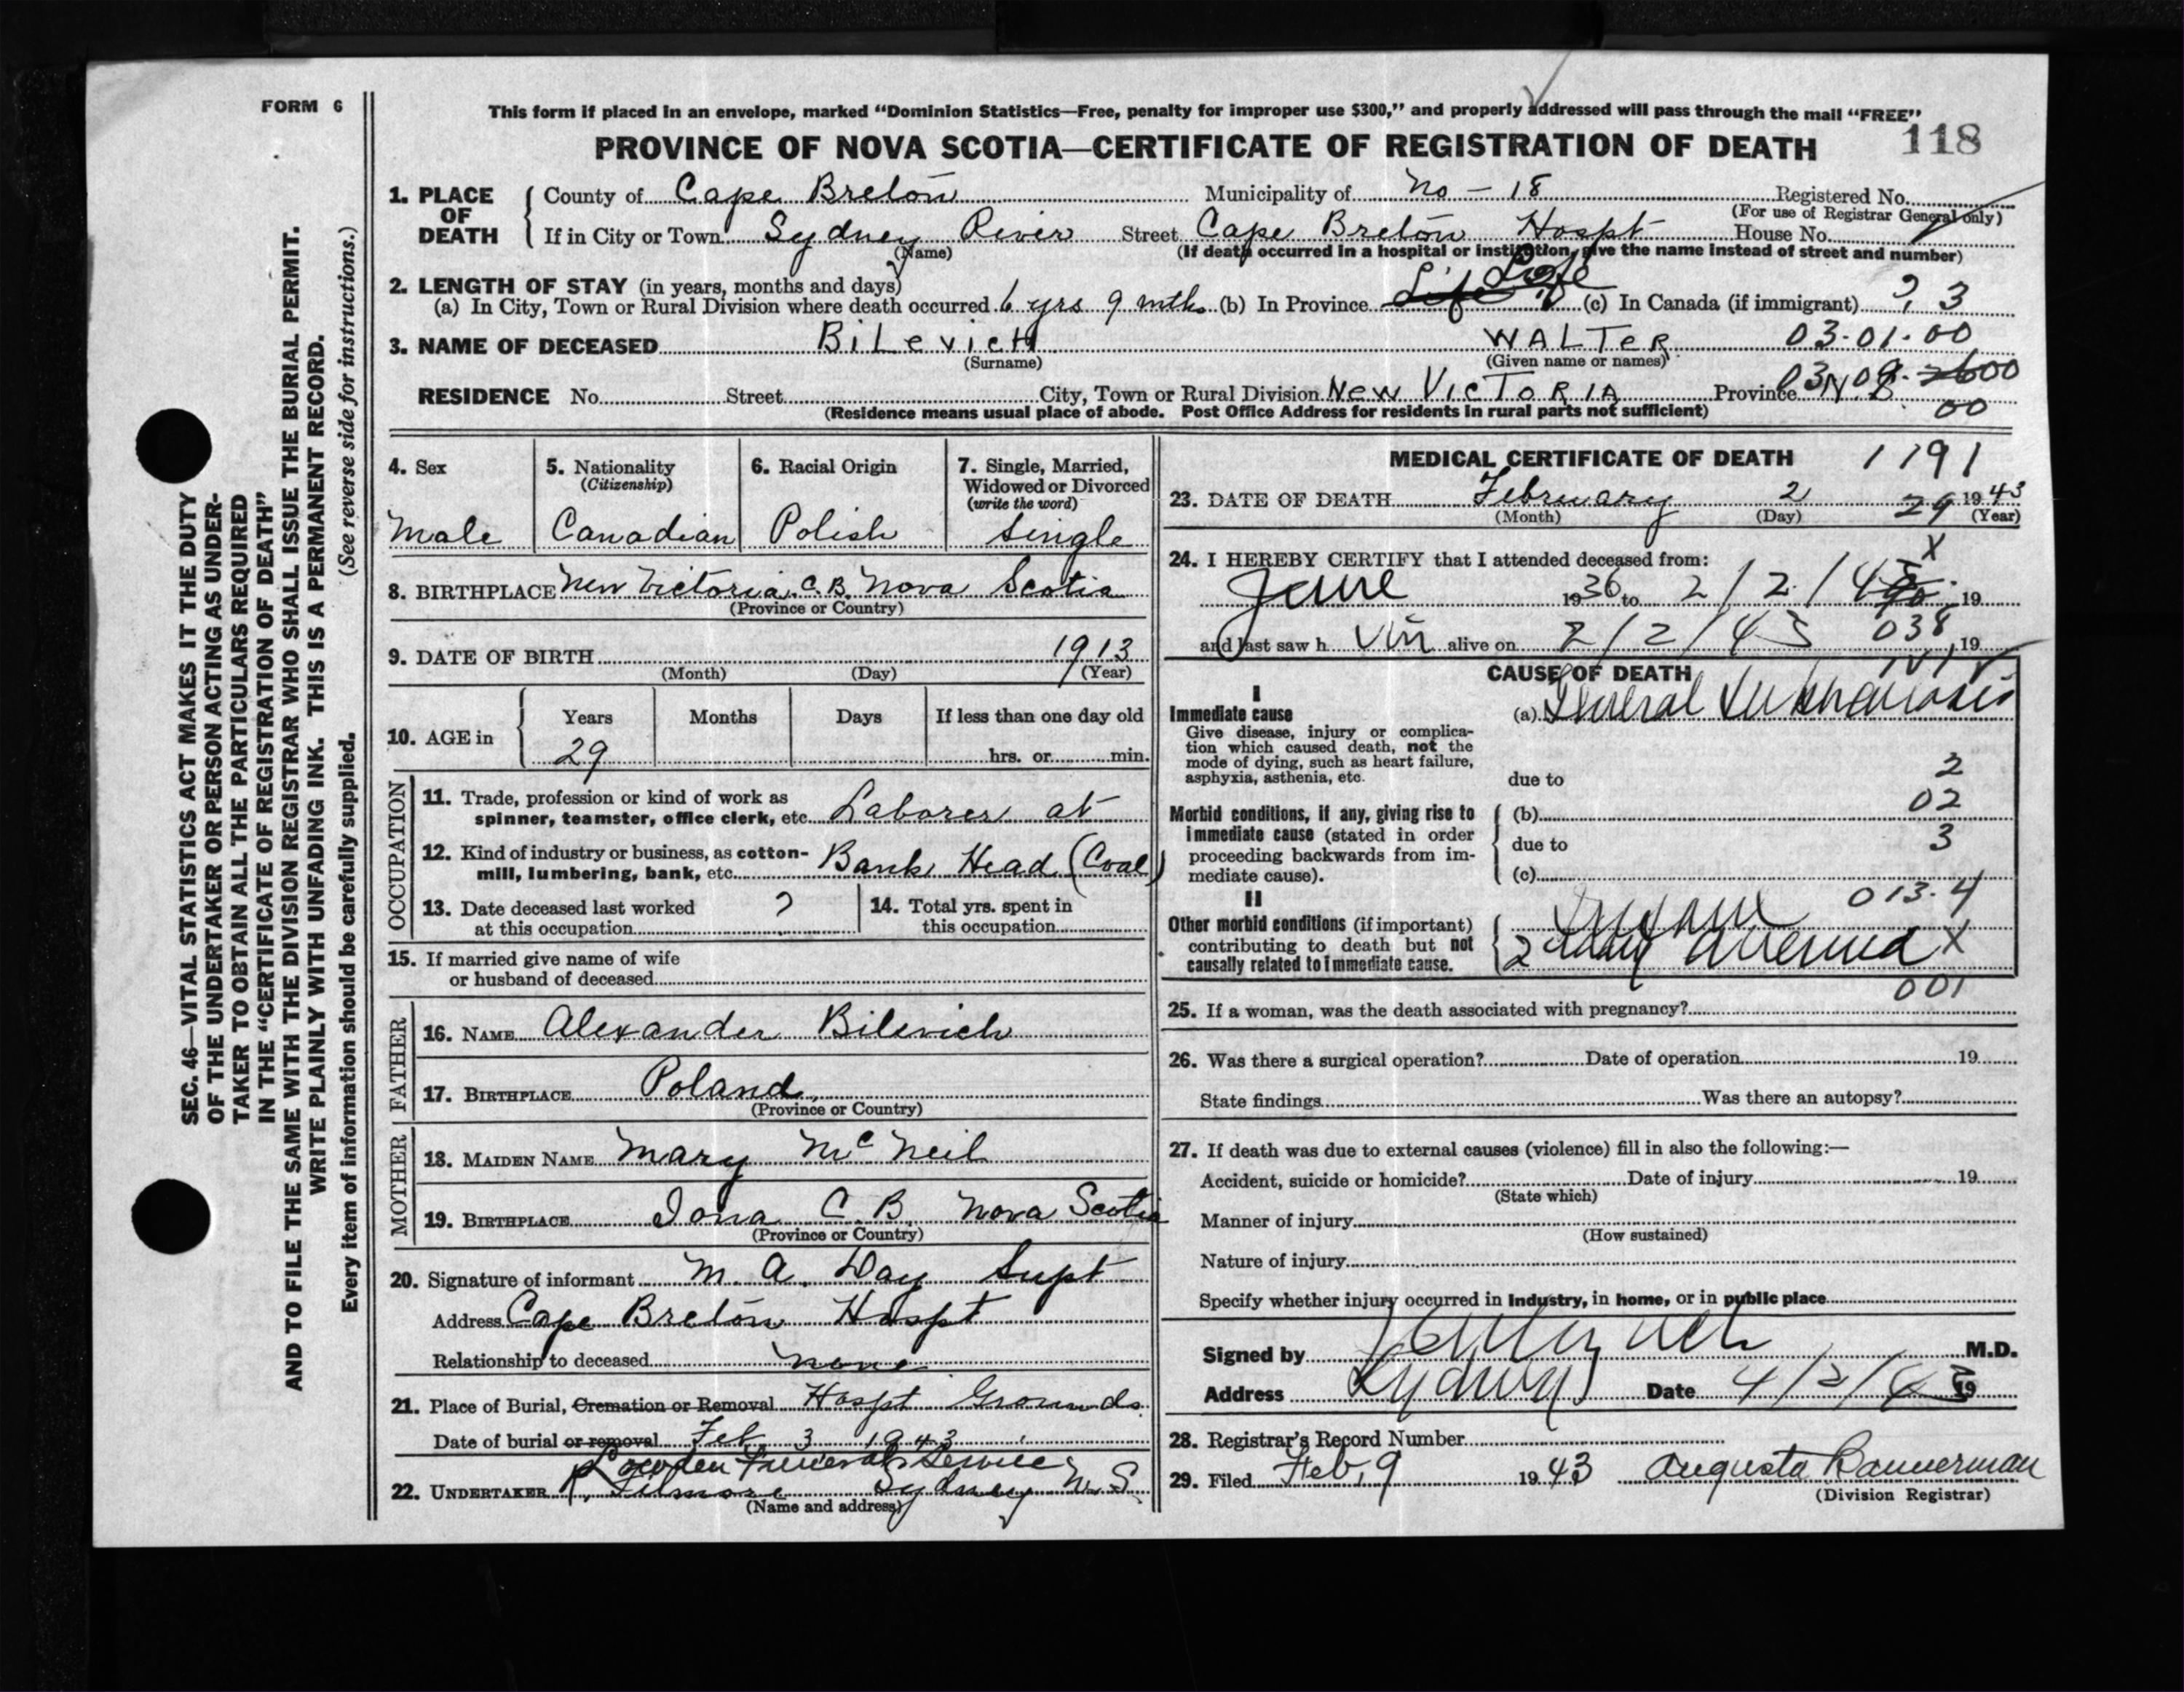 FORM 6
This form if placed in an envelope, marked “Dominion Statistics—Free, penalty for improper use $300,” and properly addressed will pass through the mail “FREE”
PROVINCE OF NOVA SCOTIA—CERTIFICATE OF REGISTRATION OF DEATH 118
1. PLACE OF DEATH
County of Cape Breton Municipality of No – 18 Registered No.
(For use of Registrar General only)
If in City or Town Sydney River Street Cape Breton Hospt House No.
(Name) (If death occurred in a hospital or institution, give the name instead of street and number)
2. LENGTH OF STAY (in years, months and days)
(a) In City, Town or Rural Division where death occurred 6 yrs 9 mths (b) In Province Life Life (c) In Canada (if immigrant) ? 3
3. NAME OF DECEASED BiLevicH WALTeR 03-01-00
(Surname) (Given name or names)
RESIDENCE No. Street City, Town or Rural Division New VicToRIA Province N.S. 03 09 00
(Residence means usual place of abode. Post Office Address for residents in rural parts not sufficient)
4. Sex
Male
5. Nationality
(Citizenship)
Canadian
6. Racial Origin
Polish
7. Single, Married,
Widowed or Divorced
(write the word)
Single
8. BIRTHPLACE New Victoria. C.B. Nova Scotia
(Province or Country)
9. DATE OF BIRTH 1913
(Month) (Day) (Year)
10. AGE in
Years Months Days If less than one day old
29 hrs. or min.
OCCUPATION
11. Trade, profession or kind of work as
spinner, teamster, office clerk, etc. Laborer at
12. Kind of industry or business, as cotton-
mill, lumbering, bank, etc. Bank Head (Coal)
13. Date deceased last worked
at this occupation ?
14. Total yrs. spent in
this occupation
15. If married give name of wife
or husband of deceased
FATHER
16. NAME Alexander Bilevich
17. BIRTHPLACE Poland
(Province or Country)
MOTHER
18. MAIDEN NAME Mary McNeil
19. BIRTHPLACE Iona C.B. Nova Scotia
(Province or Country)
20. Signature of informant M. A. Day Supt
Address Cape Breton Hospt
Relationship to deceased none
21. Place of Burial, Cremation or Removal Hospt Grounds
Date of burial or removal Feb 3 1943
Funeral Service
22. UNDERTAKER R. Filmore Sydney N.S.
(Name and address)
MEDICAL CERTIFICATE OF DEATH 1191
23. DATE OF DEATH February 2 29 1943
(Month) (Day) (Year)
24. I HEREBY CERTIFY that I attended deceased from: X
June 1936 to 2/2/43 19
and last saw h im alive on 2/2/43 038 19
CAUSE OF DEATH
I
Immediate cause
Give disease, injury or complica-
tion which caused death, not the
mode of dying, such as heart failure,
asphyxia, asthenia, etc.
(a) General
due to 2
02
Morbid conditions, if any, giving rise to
immediate cause (stated in order
proceeding backwards from im-
mediate cause).
(b)
due to 3
(c)
II
Other morbid conditions (if important)
contributing to death but not
causally related to immediate cause.
013.4
Insane
2 anemia X
001
25. If a woman, was the death associated with pregnancy?
26. Was there a surgical operation? Date of operation 19
State findings Was there an autopsy?
27. If death was due to external causes (violence) fill in also the following:—
Accident, suicide or homicide? Date of injury 19
(State which)
Manner of injury
(How sustained)
Nature of injury
Specify whether injury occurred in industry, in home, or in public place
Signed by M.D.
Address Sydney Date 4/2/43 19
28. Registrar's Record Number
29. Filed Feb. 9 1943 Augusta Bannerman
(Division Registrar)
SEC. 46—VITAL STATISTICS ACT MAKES IT THE DUTY
OF THE UNDERTAKER OR PERSON ACTING AS UNDER-
TAKER TO OBTAIN ALL THE PARTICULARS REQUIRED
IN THE “CERTIFICATE OF REGISTRATION OF DEATH”
AND TO FILE THE SAME WITH THE DIVISION REGISTRAR WHO SHALL ISSUE THE BURIAL PERMIT.
WRITE PLAINLY WITH UNFADING INK. THIS IS A PERMANENT RECORD.
Every item of information should be carefully supplied. (See reverse side for instructions.)